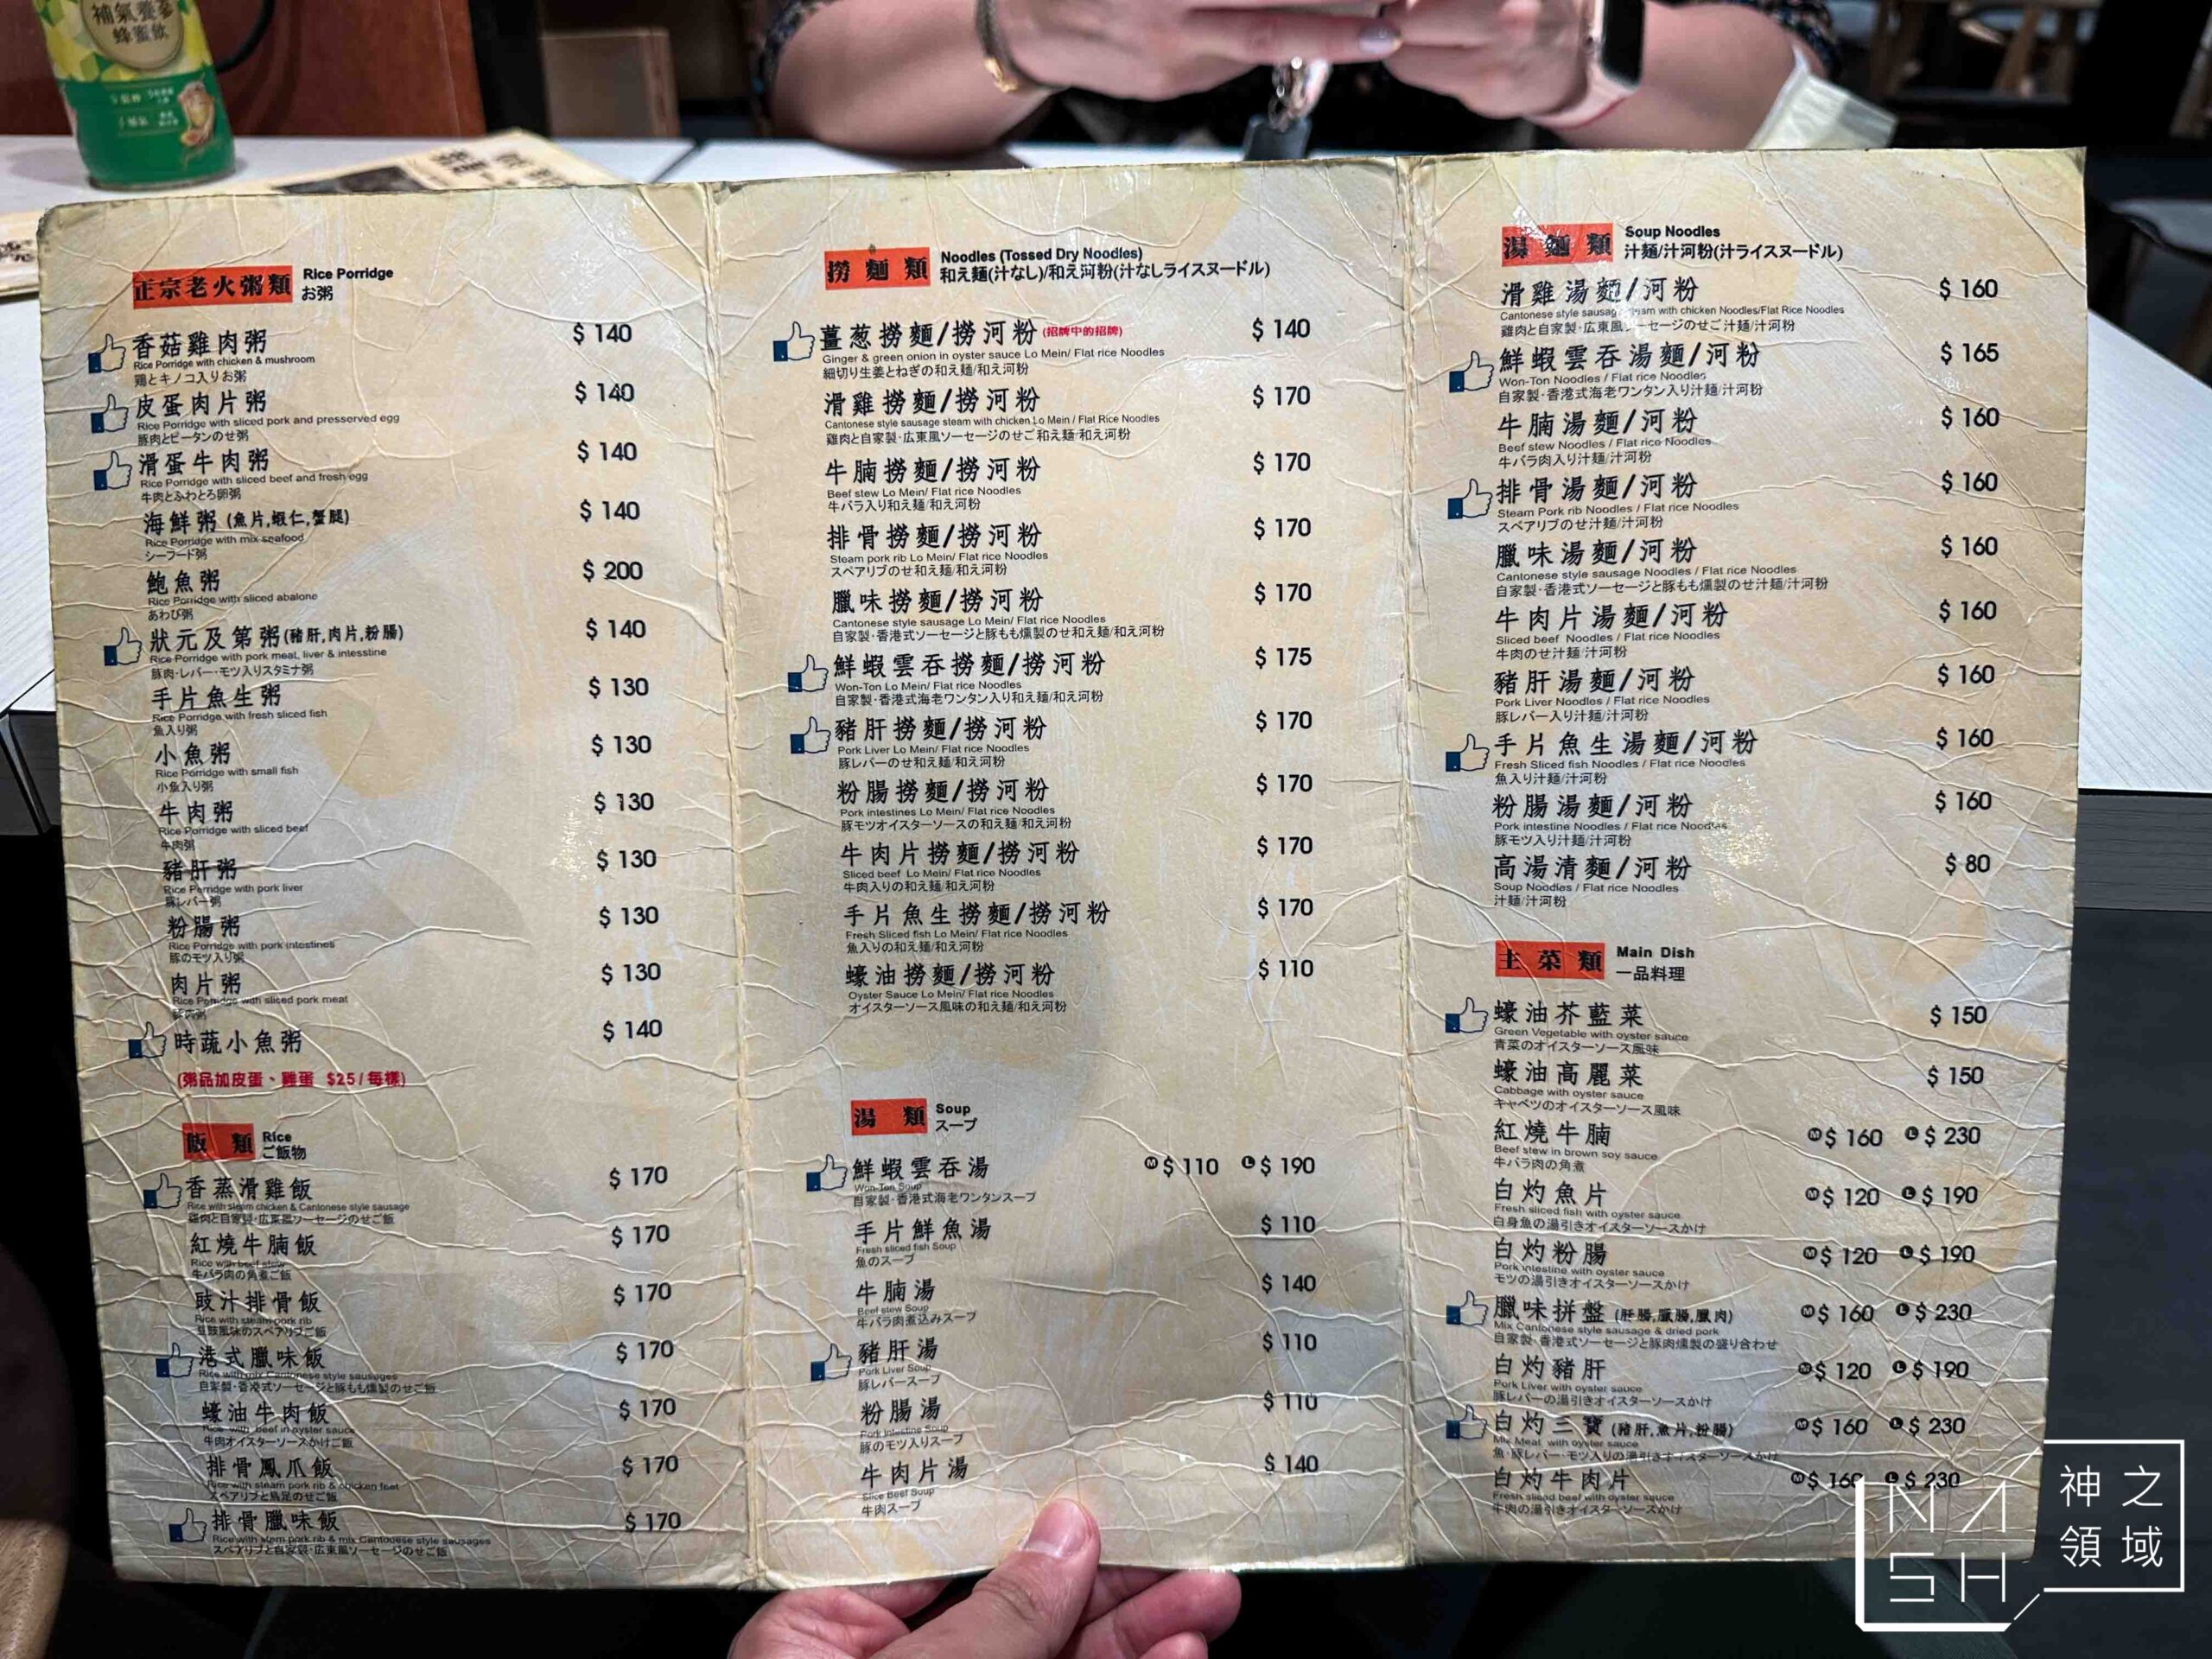 補氣養蔘
蜂蜜飲
正宗老火粥類 Rice Porridge
お粥
香菇雞肉粥 $ 140
Rice Porridge with chicken & mushroom
鶏とキノコ入りお粥
皮蛋肉片粥 $ 140
Rice Porridge with sliced pork and presserved egg
豚肉とピータンのせ粥
滑蛋牛肉粥 $ 140
Rice Porridge with sliced beef and fresh egg
牛肉とふわとろ卵粥
海鮮粥 (魚片,蝦仁,蟹腿) $ 140
Rice Porridge with mix seafood
シーフード粥
鮑魚粥 $ 200
Rice Porridge with sliced abalone
あわび粥
狀元及第粥(豬肝,肉片,粉腸) $ 140
Rice Porridge with pork meat, liver & intesstine
豚肉・レバー・モツ入りスタミナ粥
手片魚生粥 $ 130
Rice Porridge with fresh sliced fish
魚入り粥
小魚粥 $ 130
Rice Porridge with small fish
小魚入り粥
牛肉粥 $ 130
Rice Porridge with sliced beef
牛肉粥
豬肝粥 $ 130
Rice Porridge with pork liver
豚レバー粥
粉腸粥 $ 130
Rice Porridge with pork intestines
豚のモツ入り粥
肉片粥 $ 130
Rice Porridge with sliced pork meat
豚肉粥
時蔬小魚粥 $ 140
(粥品加皮蛋、雞蛋 $25/每樣)
飯類 Rice
ご飯物
香蒸滑雞飯 $ 170
Rice with steam chicken & Cantonese style sausage
雞肉と自家製・広東風ソーセージのせご飯
紅燒牛腩飯 $ 170
Rice with beef stew
牛バラ肉の角煮ご飯
豉汁排骨飯 $ 170
Rice with steam pork rib
豆鼓風味のスペアリブご飯
港式臘味飯 $ 170
Rice with mix Cantonese style sausages
自家製・香港式ソーセージと豚もも燻製のせご飯
蠔油牛肉飯 $ 170
Rice with beef in oyster sauce
牛肉オイスターソースかけご飯
排骨鳳爪飯 $ 170
Rice with steam pork rib & chicken feet
スペアリブと鳥足のせご飯
排骨臘味飯 $ 170
Rice with stem pork rib & mix Cantonese style sausages
スペアリブと自家製・広東風ソーセージのせご飯
撈麵類 Noodles (Tossed Dry Noodles)
和え麺(汁なし)/和え河粉(汁なしライスヌードル)
薑葱撈麵/撈河粉 (招牌中的招牌) $ 140
Ginger & green onion in oyster sauce Lo Mein/ Flat rice Noodles
細切り生姜とねぎの和え麺/和え河粉
滑雞撈麵/撈河粉 $ 170
Cantonese style sausage steam with chicken Lo Mein / Flat Rice Noodles
雞肉と自家製・広東風ソーセージのせご和え麺/和え河粉
牛腩撈麵/撈河粉 $ 170
Beef stew Lo Mein/ Flat rice Noodles
牛バラ入り和え麺/和え河粉
排骨撈麵/撈河粉 $ 170
Steam pork rib Lo Mein/ Flat rice Noodles
スペアリブのせ和え麺/和え河粉
臘味撈麵/撈河粉 $ 170
Cantonese style sausage Lo Mein/ Flat rice Noodles
自家製・香港式ソーセージと豚もも燻製のせ和え麺/和え河粉
鮮蝦雲吞撈麵/撈河粉 $ 175
Won-Ton Lo Mein/ Flat rice Noodles
自家製・香港式海老ワンタン入り和え麺/和え河粉
豬肝撈麵/撈河粉 $ 170
Pork Liver Lo Mein/ Flat rice Noodles
豚レバーのせ和え麺/和え河粉
粉腸撈麵/撈河粉 $ 170
Pork intestines Lo Mein/ Flat rice Noodles
豚モツオイスターソースの和え麺/和え河粉
牛肉片撈麵/撈河粉 $ 170
Sliced beef Lo Mein/ Flat rice Noodles
牛肉入りの和え麺/和え河粉
手片魚生撈麵/撈河粉 $ 170
Fresh Sliced fish Lo Mein/ Flat rice Noodles
魚入りの和え麺/和え河粉
蠔油撈麵/撈河粉 $ 110
Oyster Sauce Lo Mein/ Flat rice Noodles
オイスターソース風味の和え麺/和え河粉
湯類 Soup
スープ
鮮蝦雲吞湯 M$ 110 L$ 190
Won-Ton Soup
自家製・香港式海老ワンタンスープ
手片鮮魚湯 $ 110
Fresh sliced fish Soup
魚のスープ
牛腩湯 $ 140
Beef stew Soup
牛バラ肉煮込みスープ
豬肝湯 $ 110
Pork Liver Soup
豚レバースープ
粉腸湯 $ 110
Pork Intestine Soup
豚のモツ入りスープ
牛肉片湯 $ 140
Slice Beef Soup
牛肉スープ
湯麵類 Soup Noodles
汁麺/汁河粉(汁ライスヌードル)
滑雞湯麵/河粉 $ 160
Cantonese style sausage steam with chicken Noodles/Flat Rice Noodles
雞肉と自家製・広東風ソーセージのせご汁麺/汁河粉
鮮蝦雲吞湯麵/河粉 $ 165
Won-Ton Noodles / Flat rice Noodles
自家製・香港式海老ワンタン入り汁麺/汁河粉
牛腩湯麵/河粉 $ 160
Beef stew Noodles / Flat rice Noodles
牛バラ肉入り汁麺/汁河粉
排骨湯麵/河粉 $ 160
Steam Pork rib Noodles / Flat rice Noodles
スペアリブのせ汁麺/汁河粉
臘味湯麵/河粉 $ 160
Cantonese style sausage Noodles / Flat rice Noodles
自家製・香港式ソーセージと豚もも燻製のせ汁麺/汁河粉
牛肉片湯麵/河粉 $ 160
Sliced beef Noodles / Flat rice Noodles
牛肉のせ汁麺/汁河粉
豬肝湯麵/河粉 $ 160
Pork Liver Noodles / Flat rice Noodles
豚レバー入り汁麺/汁河粉
手片魚生湯麵/河粉 $ 160
Fresh Sliced fish Noodles / Flat rice Noodles
魚入り汁麺/汁河粉
粉腸湯麵/河粉 $ 160
Pork intestine Noodles / Flat rice Noodles
豚モツ入り汁麺/汁河粉
高湯清麵/河粉 $ 80
Soup Noodles / Flat rice Noodles
汁麺/汁河粉
主菜類 Main Dish
一品料理
蠔油芥藍菜 $ 150
Green Vegetable with oyster sauce
青菜のオイスターソース風味
蠔油高麗菜 $ 150
Cabbage with oyster sauce
キャベツのオイスターソース風味
紅燒牛腩 M$ 160 L$ 230
Beef stew in brown soy sauce
牛バラ肉の角煮
白灼魚片 M$ 120 L$ 190
Fresh sliced fish with oyster sauce
白身魚の湯引きオイスターソースかけ
白灼粉腸 M$ 120 L$ 190
Pork intestine with oyster sauce
モツの湯引きオイスターソースかけ
臘味拼盤 (肝腸,臘腸,臘肉) M$ 160 L$ 230
Mix Cantonese style sausage & dried pork
自家製・香港式ソーセージと豚肉燻製の盛り合わせ
白灼豬肝 M$ 120 L$ 190
Pork Liver with oyster sauce
豚レバーの湯引きオイスターソースかけ
白灼三寶 (豬肝,魚片,粉腸) M$ 160 L$ 230
Mix Meat with oyster sauce
魚・豚レバー・モツ入りの湯引きオイスターソースかけ
白灼牛肉片 M$ 160 L$ 230
Fresh sliced beef with oyster sauce
牛肉の湯引きオイスターソースかけ
NASH
神之
領域